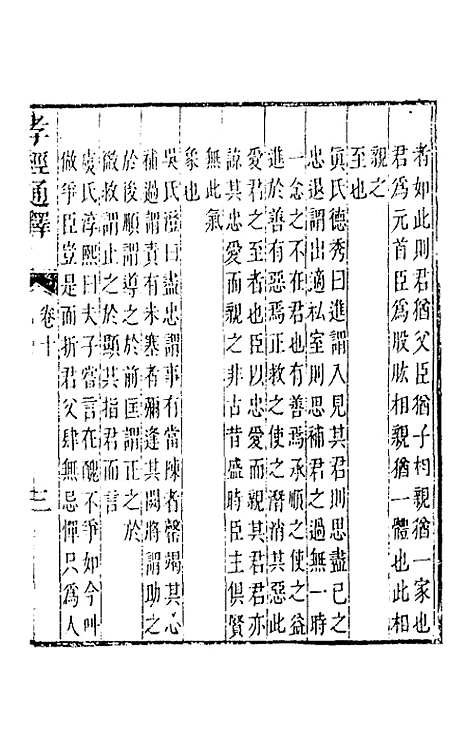 者如此則君猶父臣猶子相親猶一家也
君爲元首臣爲股肱相親猶一體也此相
親之
至也
眞氏德秀曰進謂入見其君則思盡己之
忠退謂出適私室則思補君之過無一時
一念之不在君也有善焉承順之使之益
進於善有惡焉正救之使之潛消其惡此
愛君之至者也臣以忠愛而親其君君亦
諒其忠愛而親之非古昔盛時臣主俱賢
無此氣
象也
吳氏澄曰盡忠謂事有當陳者罄竭其心
補過謂責有未塞者彌逢其闕將謂助之
於後順謂導之於前匡謂正之於
微救謂止之於顯其指君而言
虞氏淳熙曰夫子嘗言在醜不爭如今叫
做爭臣豈是面折君父肆無忌憚只爲人
孝經通釋
卷十
十二